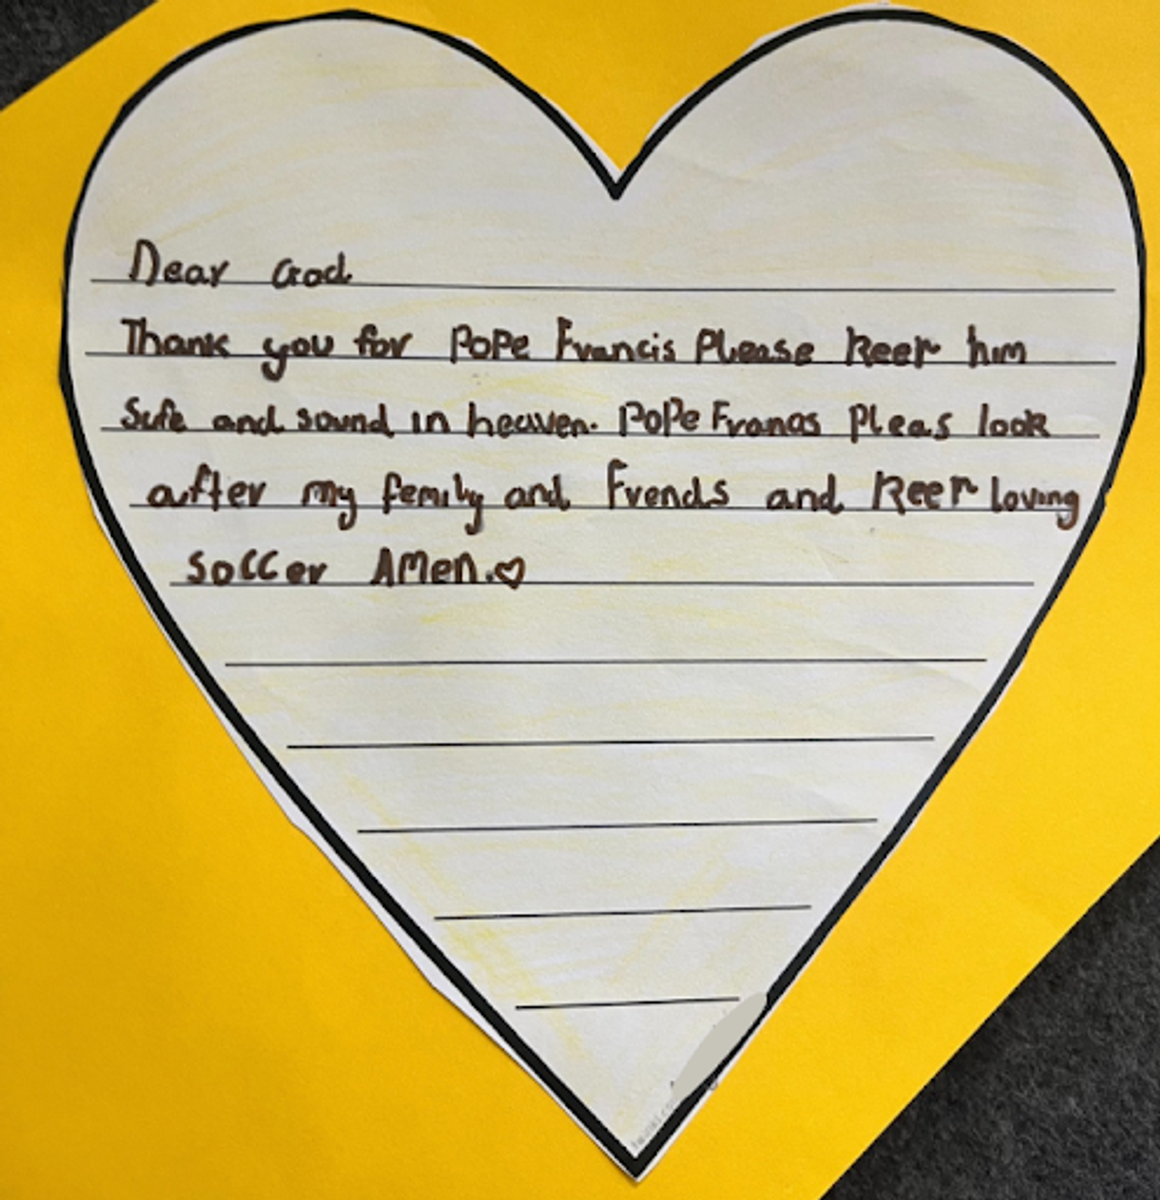 Dear God
Thank you for Pope Francis Please Keep him
Safe and sound in heaven. Pope Francis Pleas look
after my femily and Frends and Keep loving
soccer Amen.♡